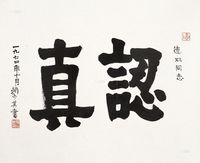 同志
認真
一九七四年十月賴少其書